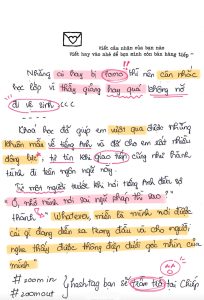 Viết cảm nhận của bạn nào
Viết hay vào nhé để bọn mình còn bán hàng tiếp ~
Những ai hay bị fomo thì nên cân nhắc
học lớp vì thầy giảng hay quá không nỡ
đi vệ sinh :<<<
Khoá học đã giúp em vượt qua được những
khuôn mẫu về tiếng Anh và đã cho em rất nhiều
động lực tự tin khi giao tiếp cũng như hành
trình đi đến ngôn ngữ này.
Từ một người trước khi nói tiếng Anh đến sợ
ồ, nhỡ mình nói sai ngữ pháp thì sao
thành Whatever, miễn là mình nói được
cái gì đang diễn ra trong đầu và cho người
nghe thấy được thông điệp dưới góc nhìn của
mình"
# zoom in
# zoom out
hashtag bạn sẽ tâm đắc tại Chấp